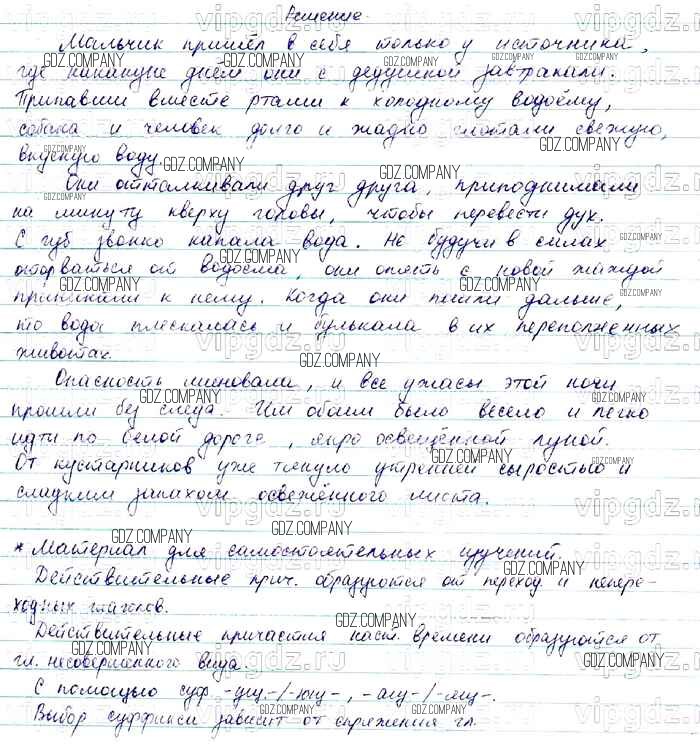 Решение.
Мальчик пришёл в себя только у источника,
где накануне днём они с дедушкой завтракали.
Припавши вместе ртами к холодному водоёму,
собака и человек долго и жадно глотали свежую,
вкусную воду.
Они отталкивали друг друга, приподнимали
на минуту кверху головы, чтобы перевести дух.
С губ звонко капала вода. Не будучи в силах
оторваться от водоёма, они опять с новой жаждой
приникали к нему. Когда они пошли дальше,
то вода плескалась и булькала в их переполненных
животах.
Опасность миновала, и все ужасы этой ночи
прошли без следа. Им обоим было весело и легко
идти по белой дороге, ярко освещённой луной.
От кустарников уже тянуло утренней сыростью и
сладким запахом освежённого листа.
* Материал для самостоятельных изучений.
Действительные прич. образуются от переход. и непере-
ходных глаголов.
Действительные причастия наст. времени образуются от
гл. несовершенного вида.
С помощью суф. -ущ-/-ющ-, -ащ-/-ящ-.
Выбор суффикса зависит от спряжения гл.
GDZ.COMPANY
vipgdz.ru